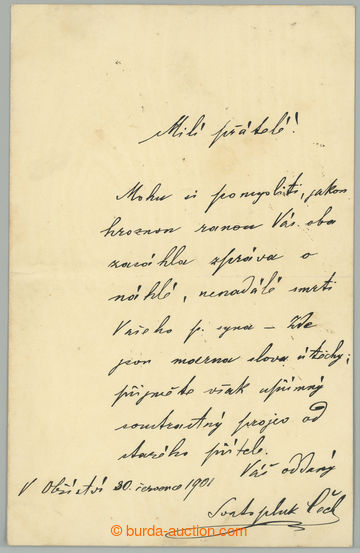 Milí přátelé!
Mohu si pomysliti, jakou
hroznou ranou Vás oba
zasáhla zpráva o
náhlé, nenadálé smrti
Vašeho p. syna – Zde
jsou marna slova útěchy;
přijměte však upřímný
soustrastný projev od
starého přítele.
Váš oddaný
V Obříství 30. července 1901
Svatopluk Čech
© burda-auction.com